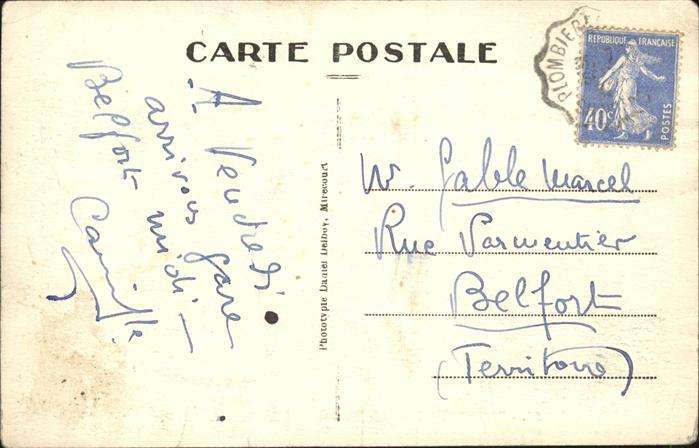 CARTE POSTALE
PLOMBIERE
REPUBLIQUE FRANÇAISE
40c
POSTES
A Vendredi
arrivons gare
Belfort midi —
Camille
Phototypie Daniel Delboy, Mirecourt
Mr. Gable Marcel
Rue Parmentier
Belfort
(Territoire)